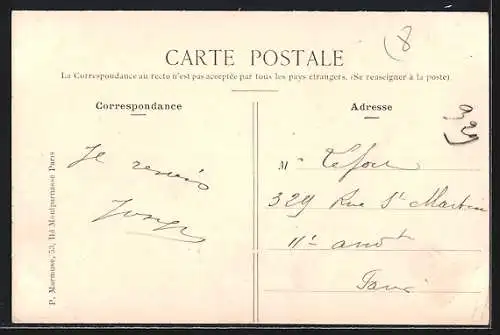 (8
CARTE POSTALE
La Correspondance au recto n'est pas acceptée par tous les pays étrangers. (Se renseigner à la poste)
Correspondance
Adresse
329
Je reviens
M
329 Rue St Martin
11e arrodt
Paris
P. Marmuse, 53, Bd Montparnasse Paris